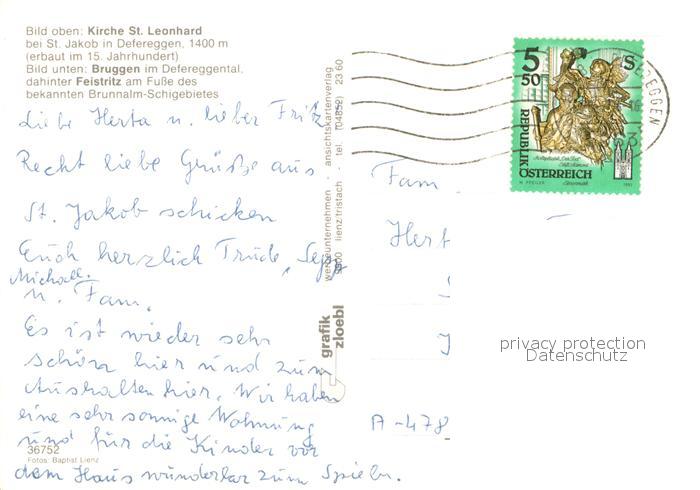 Bild oben: Kirche St. Leonhard
bei St. Jakob in Defereggen, 1400 m
(erbaut im 15. Jahrhundert)
Bild unten: Bruggen im Defereggental,
dahinter Feistritz am Fuße des
bekannten Brunnalm-Schigebietes
Liebe Herta u. lieber Fritz
Recht liebe Grüße aus
St. Jakob schicken
Euch herzlich Trude, Sepp
Michael.
u. Fam.
Es ist wieder sehr
schön hier und zum
Aushalten hier. Wir haben
eine sehr sonnige Wohnung
und für die Kinder vor
dem Haus wunderbar zum Spielen.
36752
Fotos: Baptist Lienz
grafik
zloebl
werbeunternehmen · ansichtskartenverlag
9900 lienz/tristach · tel. (04852) 23 60
5 50 S
REPUBLIK
ÖSTERREICH
EREGGEN
Fam.
Hert
A-478
privacy protection
Datenschutz